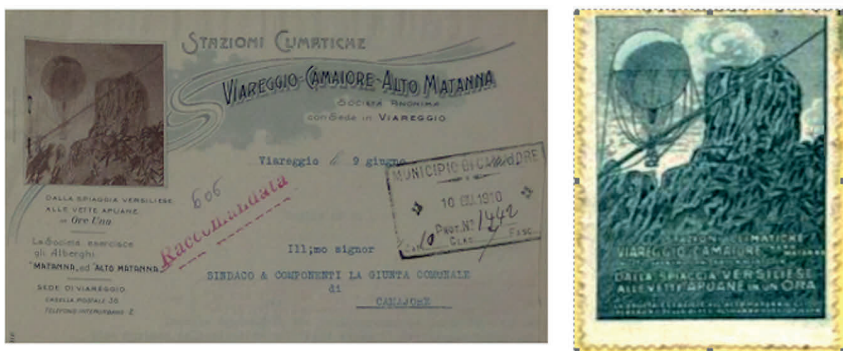 STAZIONI CLIMATICHE
VIAREGGIO-CAMAIORE-ALTO MATANNA
SOCIETÀ ANONIMA
con Sede in VIAREGGIO
Viareggio li 9 giugno
MUNICIPIO DI CAMAIORE
10 GIU. 1910
PROT. N° 1442
CAT. 10 CLAS. FASC.
606
Raccomandata
DALLA SPIAGGIA VERSILIESE
ALLE VETTE APUANE
in Ore Una
La Società esercisce
gli Alberghi
"MATANNA, ed "ALTO MATANNA,
SEDE DI VIAREGGIO
CASELLA POSTALE 36
TELEFONO INTERURBANO 2
Ill;mo signor
SINDACO & COMPONENTI LA GIUNTA COMUNALE
di
CAMAJORE
STAZIONI CLIMATICHE
VIAREGGIO CAMAIORE MATANNA
DALLA SPIAGGIA VERSILIESE
ALLE VETTE APUANE IN UN ORA